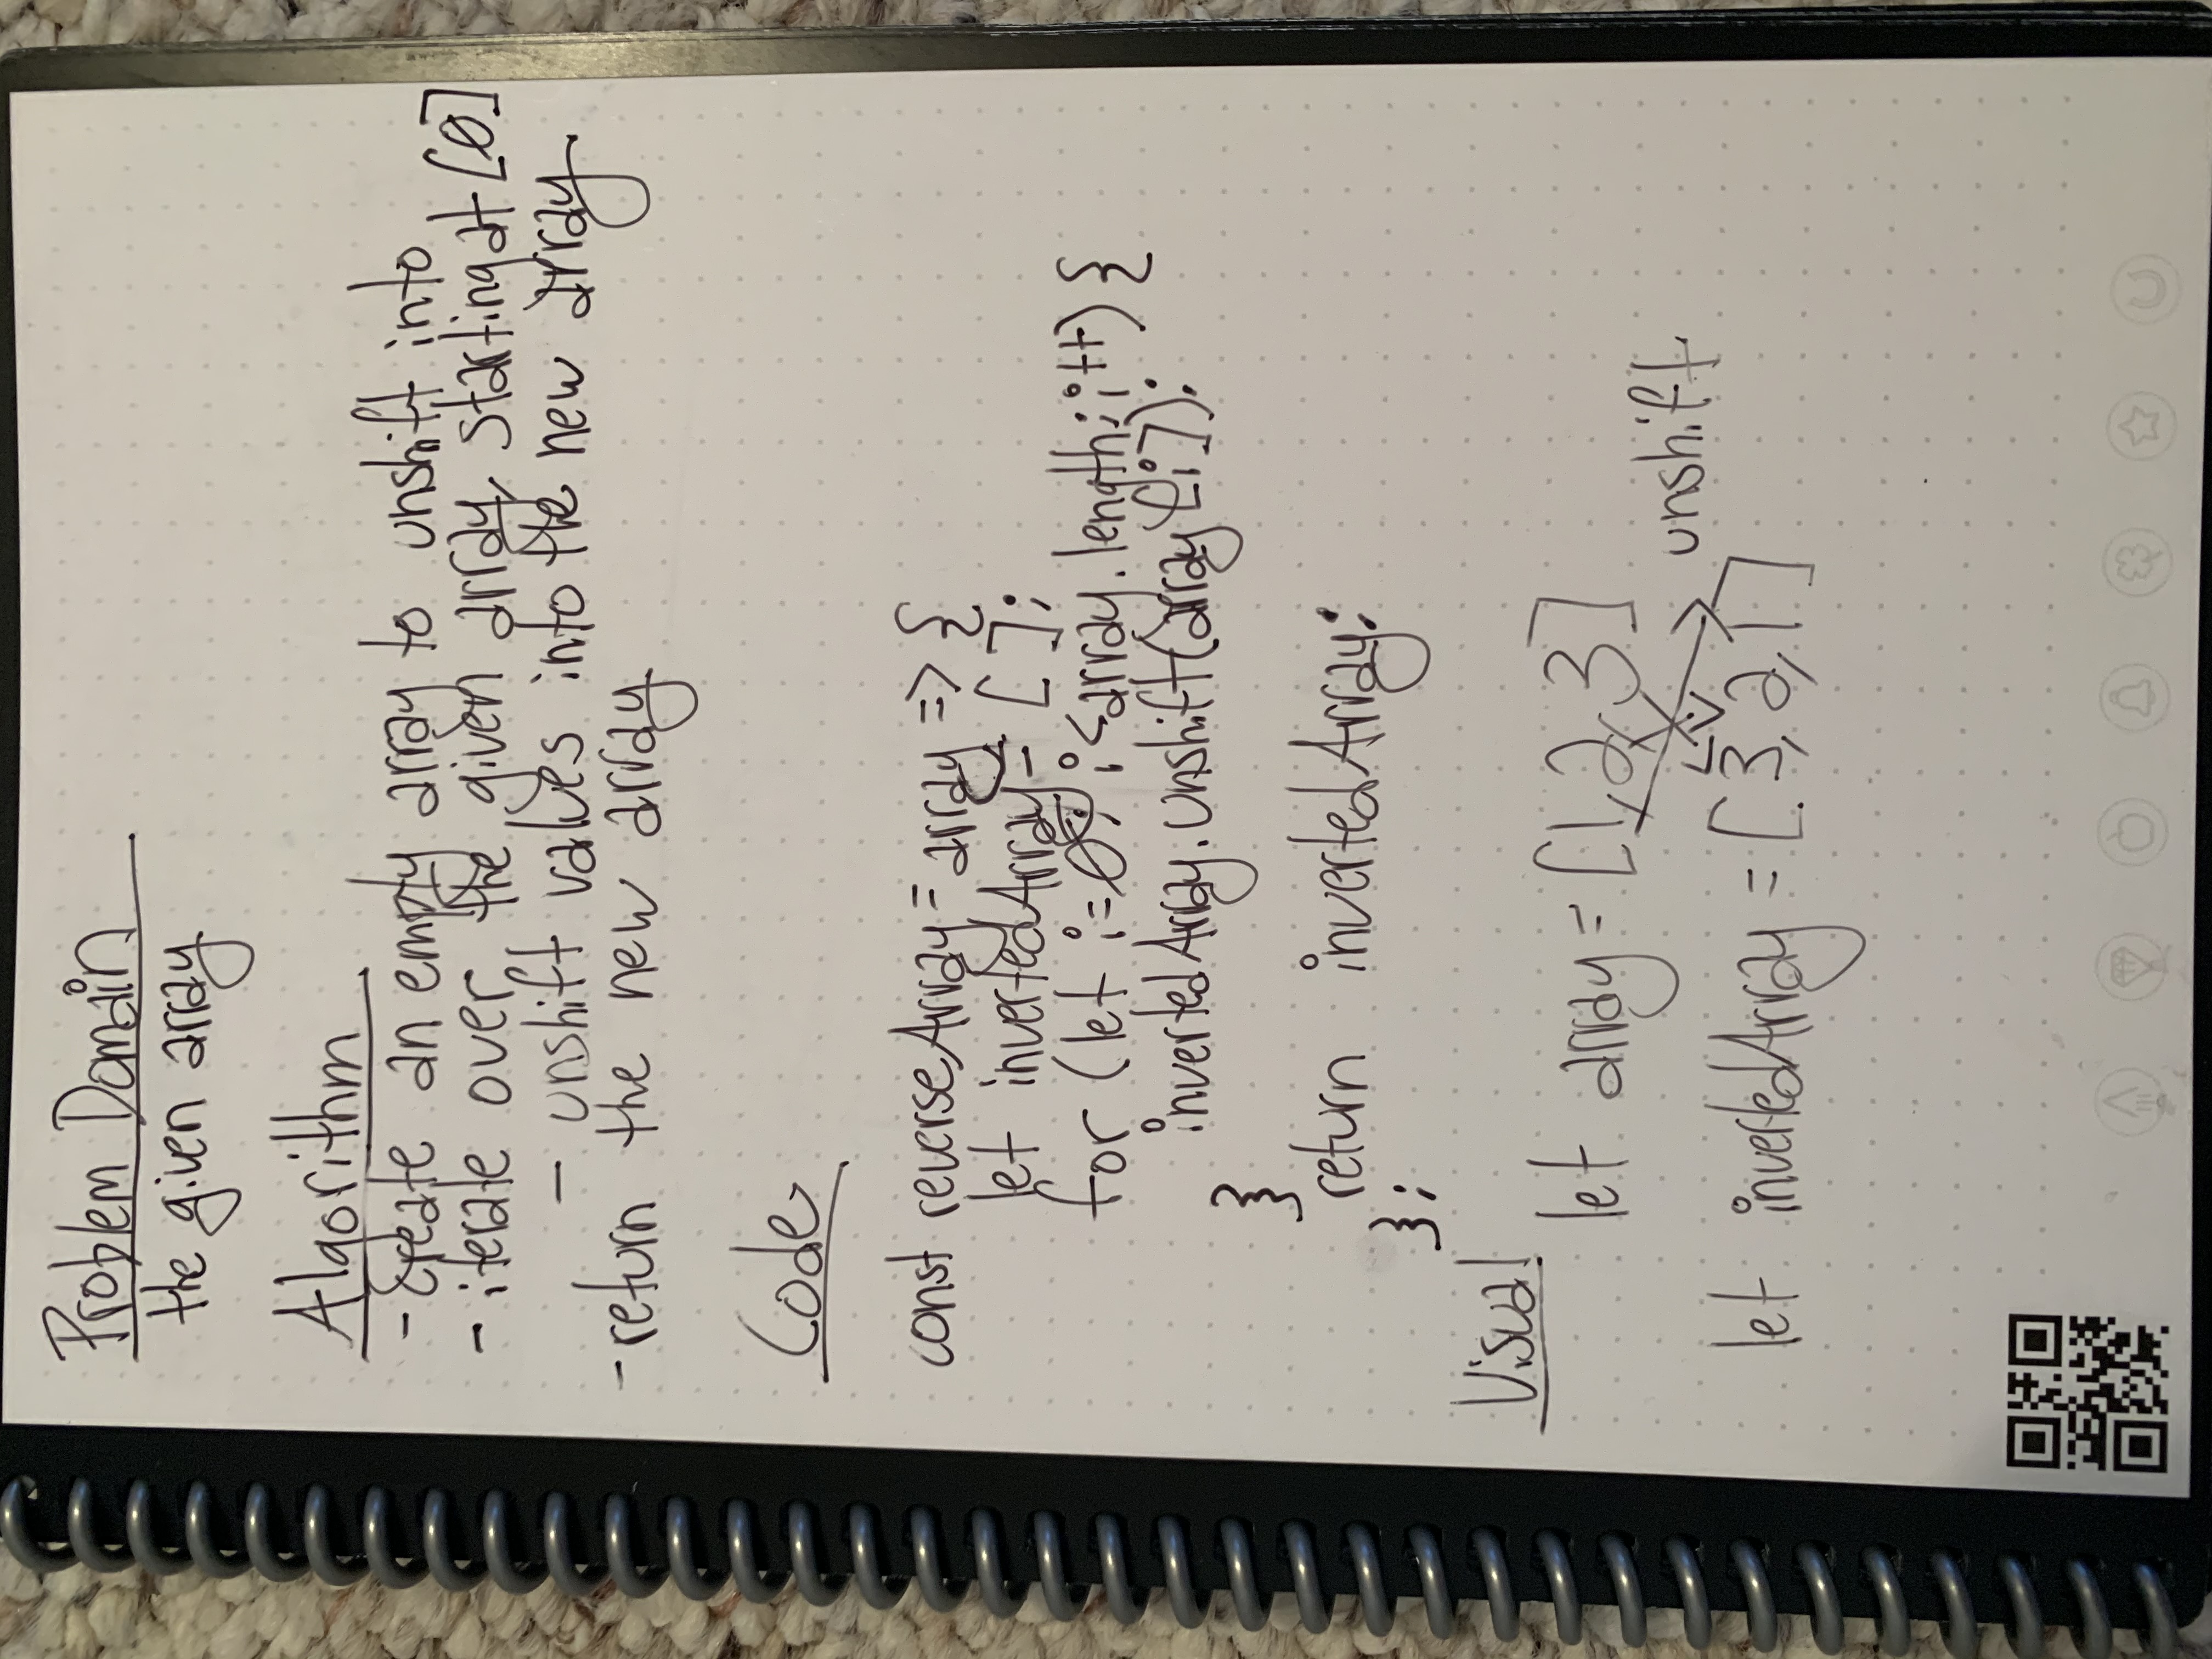 Problem Domain
the given array
Algorithm
- create an empty array to unshift into
- iterate over the given array, starting at [0]
- unshift values into the new array
- return the new array
Code
const reverseArray = array => {
let invertedArray = [ ];
for (let i=0; i<array.length; i++) {
invertedArray.unshift(array[i]);
}
return invertedArray;
};
Visual
let array = [1, 2, 3]
unshift
let invertedArray = [3, 2, 1]